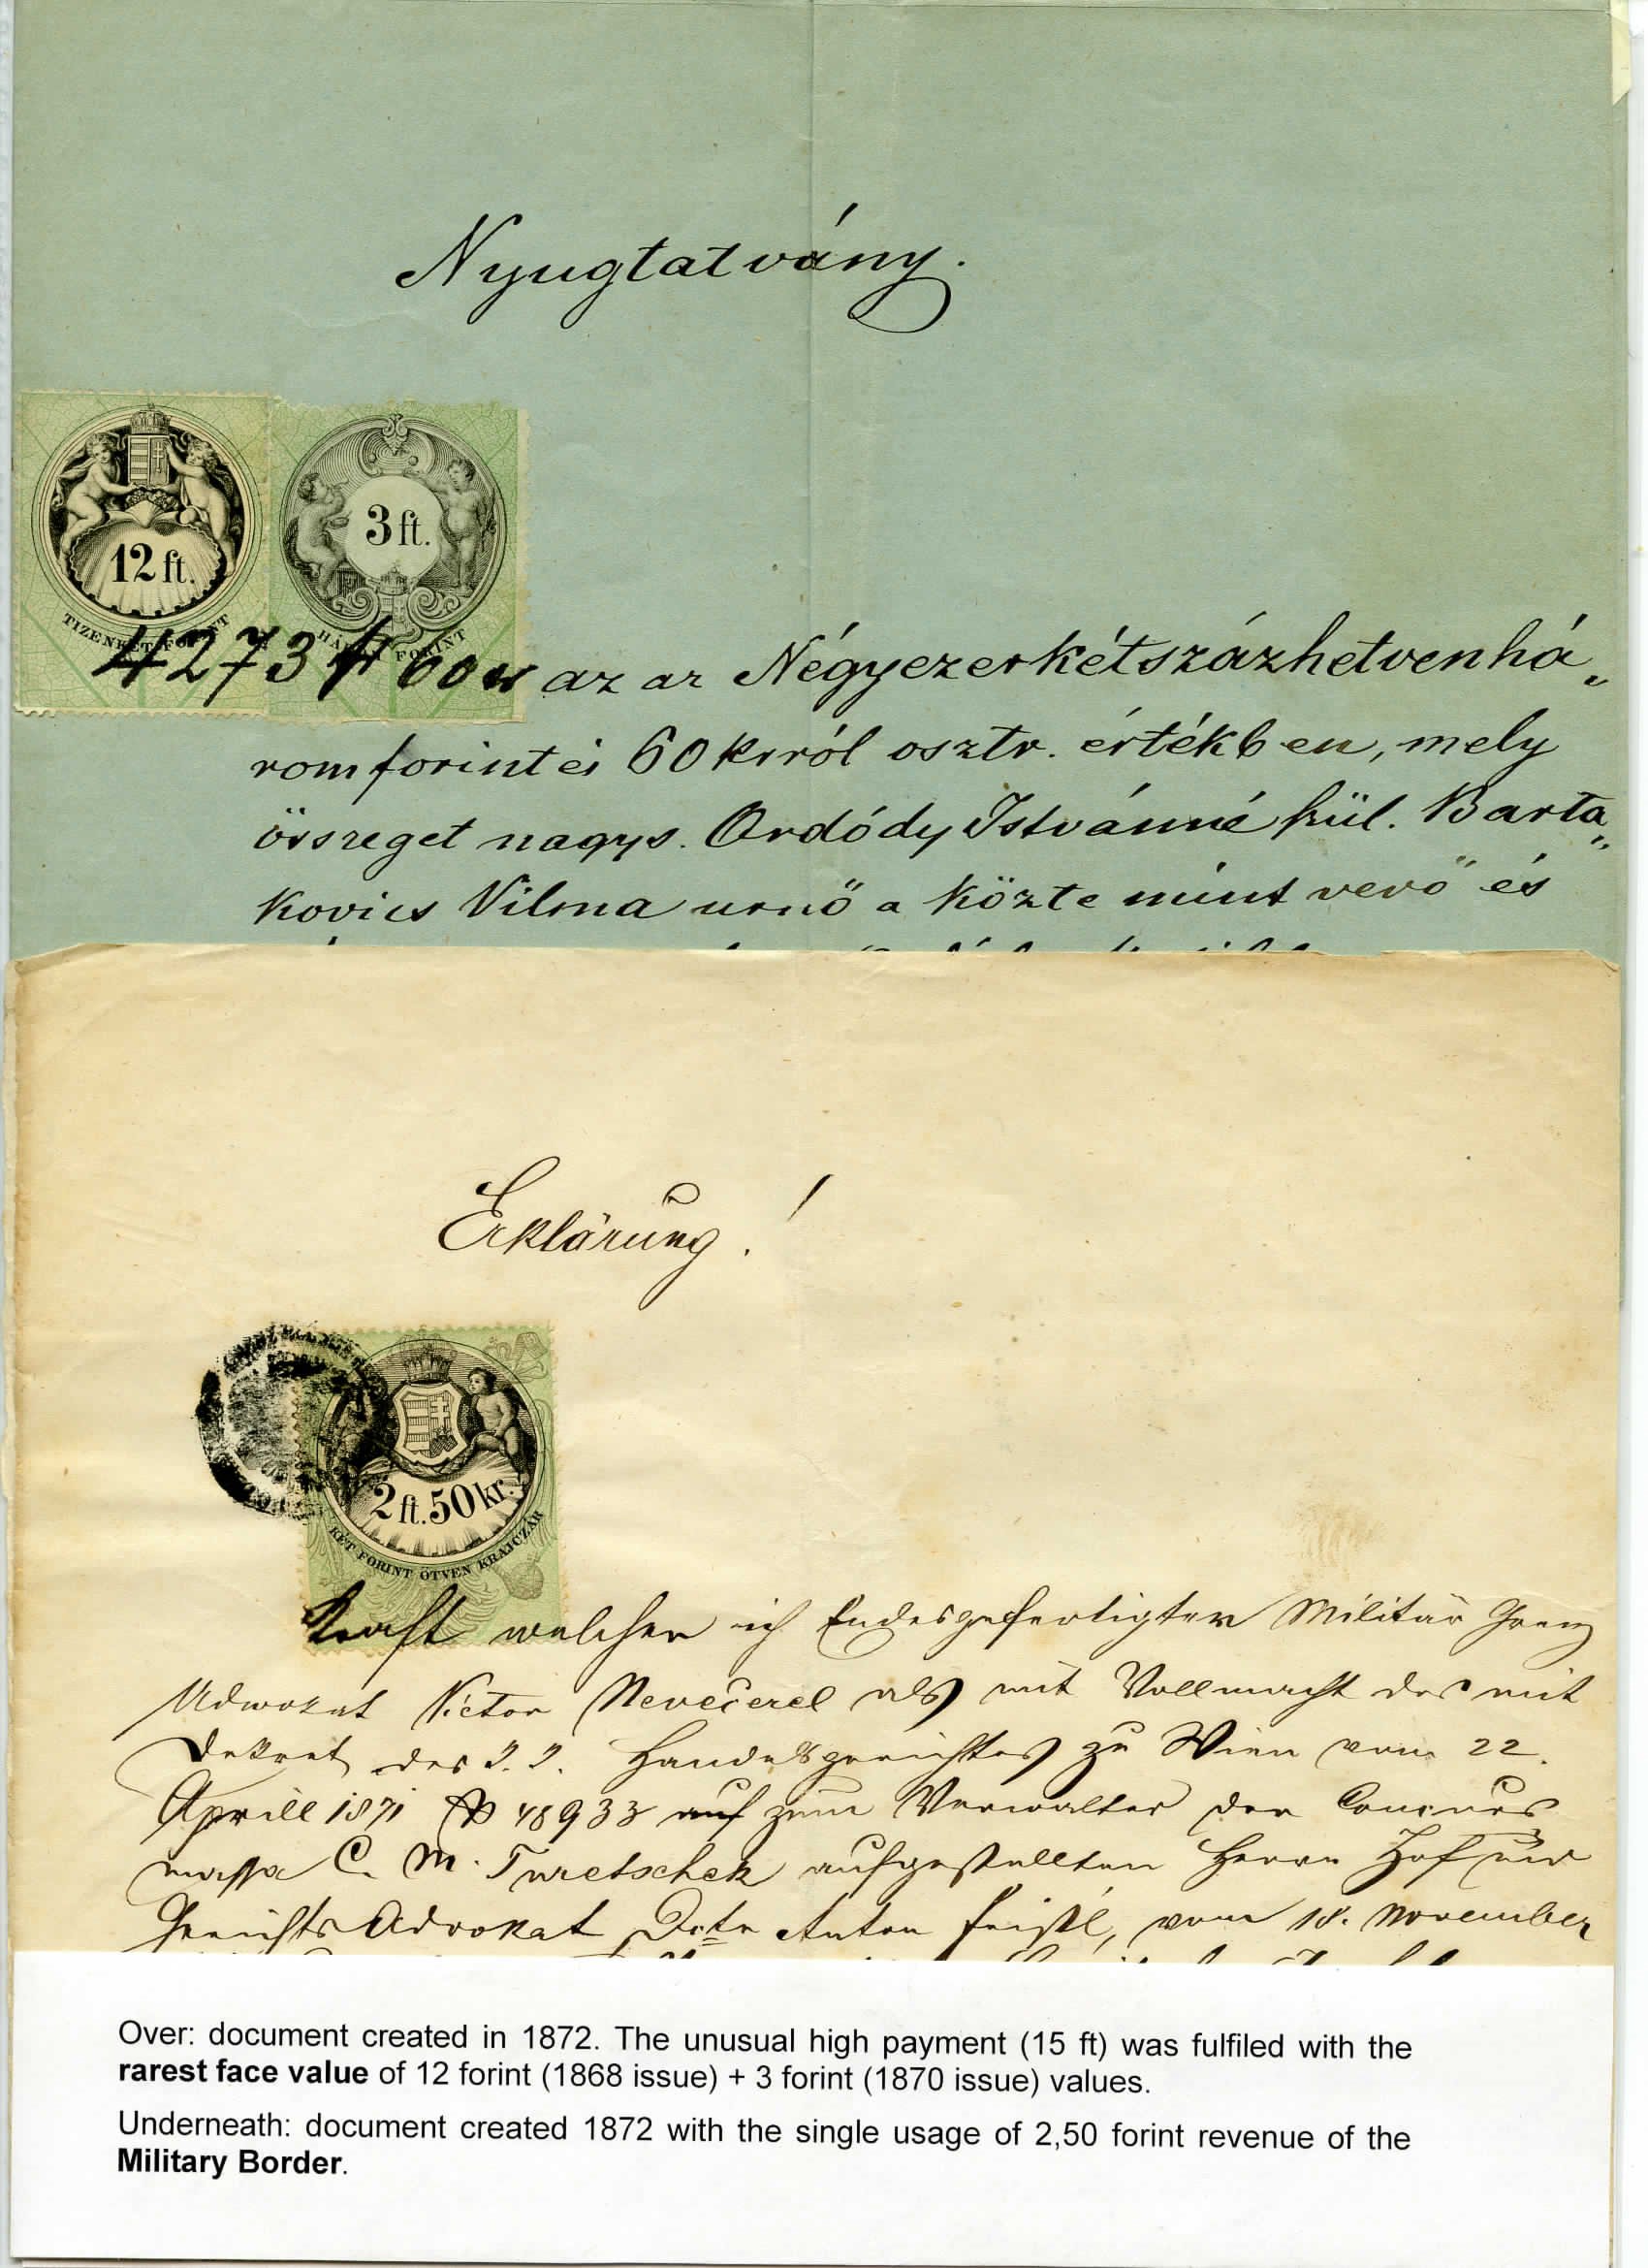 Nyugtatvány.
12 ft.
TIZENKÉT FORINT
3 ft.
HÁROM FORINT
4273 ft 60 kr az az Négyezerkétszázhetvenhá„
romforint és 60 krról osztr. értékben, mely
összeget nagys. Ordódy Istvánné szül. Barta„
kovics Vilma urnő a közte mint vevő és
Erklärung!
2 ft. 50 kr.
KÉT FORINT ÖTVEN KRAJCZÁR
Kraft welcher ich Endesgefertigter Militär Grenz
Advokat Victor Nevečerel als mit Vollmacht des mit
Dekret des k. k. Handelsgerichtes zu Wien vom 22.
Aprill 1871 48933 auf zum Verwalter der Concurs
massa C. M. Turetschek aufgestellten Herrn Hof und
Gerichts Advokat Dctr Anton , vom 18. November
Over: document created in 1872. The unusual high payment (15 ft) was fulfiled with the
rarest face value of 12 forint (1868 issue) + 3 forint (1870 issue) values.
Underneath: document created 1872 with the single usage of 2,50 forint revenue of the
Military Border.